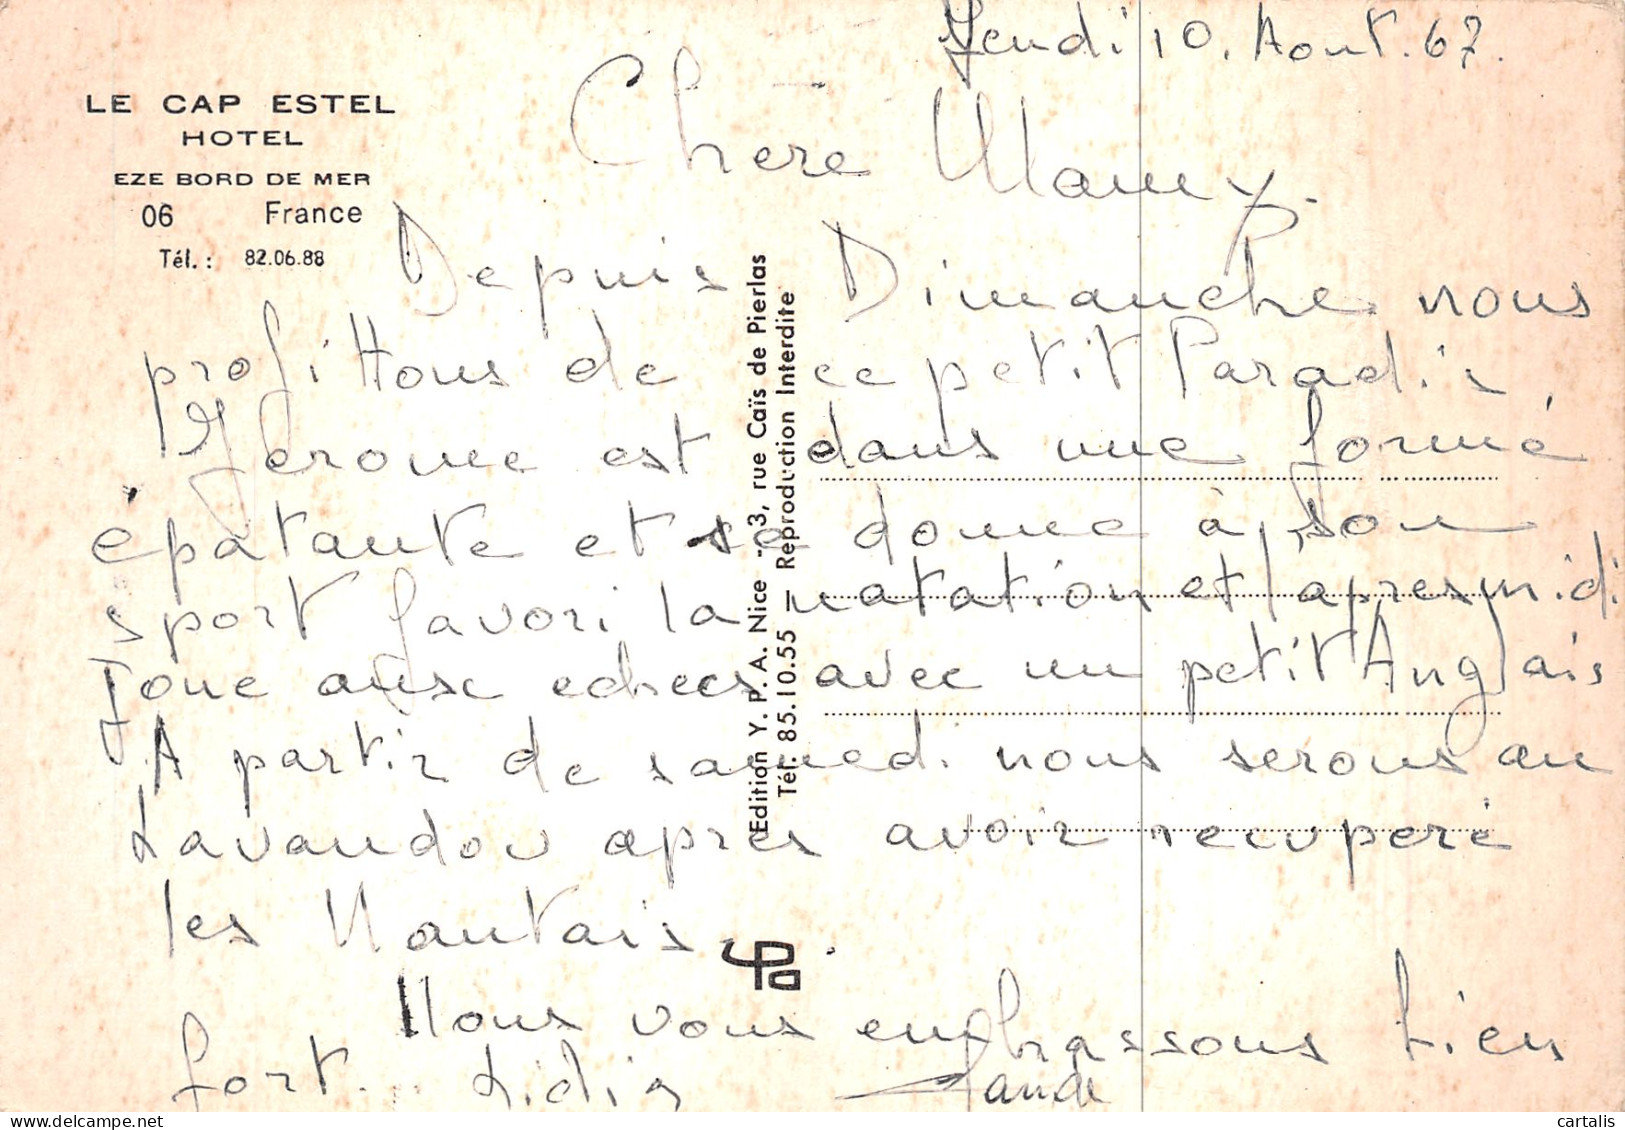 Jeudi 10. Aout. 67.
LE CAP ESTEL
HOTEL
EZE BORD DE MER
06 France
Tél. : 82.06.88
Chère Mamy.
Depuis Dimanche nous
profittons de ce petit Paradis.
Jerome est dans une forme
épatante et se donne à son
sport favori la natation et l'apres midi
joue aux echecs avec un petit Anglais
A partir de samedi nous serons au
Lavandou apres avoir recuperé
les Nantais.
Nous vous embrassons bien
fort. Lidia Claude
Edition Y. P. A. Nice - 3, rue Caïs de Pierlas
Tél. 85.10.55 — Reproduction Interdite
YPa
cartalis
www.delcampe.net